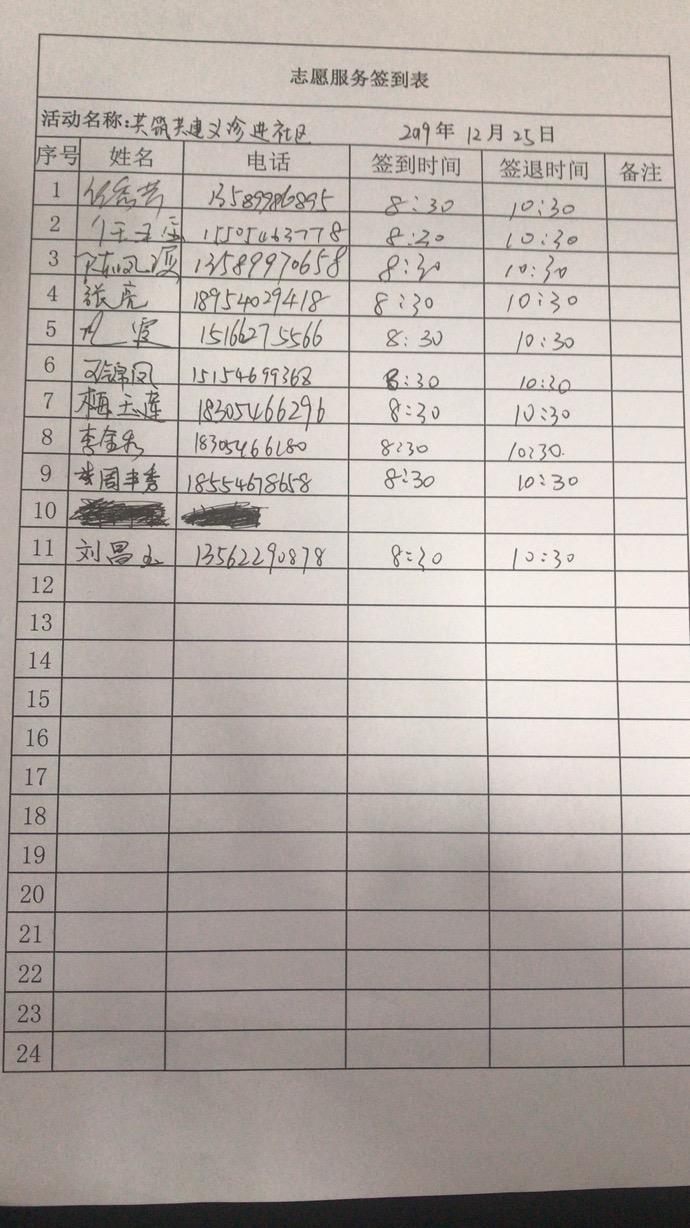 志愿服务签到表
活动名称:共筑共建义诊进社区 2019年 12月 25日
序号 姓名 电话 签到时间 签退时间 备注
1 13589986895 8:30 10:30
2 15505463778 8:30 10:30
3 13589970658 8:30 10:30
4 张亮 18954029418 8:30 10:30
5 15166275566 8:30 10:30
6 15154699368 8:30 10:30
7 梅玉莲 18305466296 8:30 10:30
8 李金彩 18305466180 8:30 10:30
9 周丰秀 18554678658 8:30 10:30
10
11 刘昌玉 13562290878 8:30 10:30
12
13
14
15
16
17
18
19
20
21
22
23
24